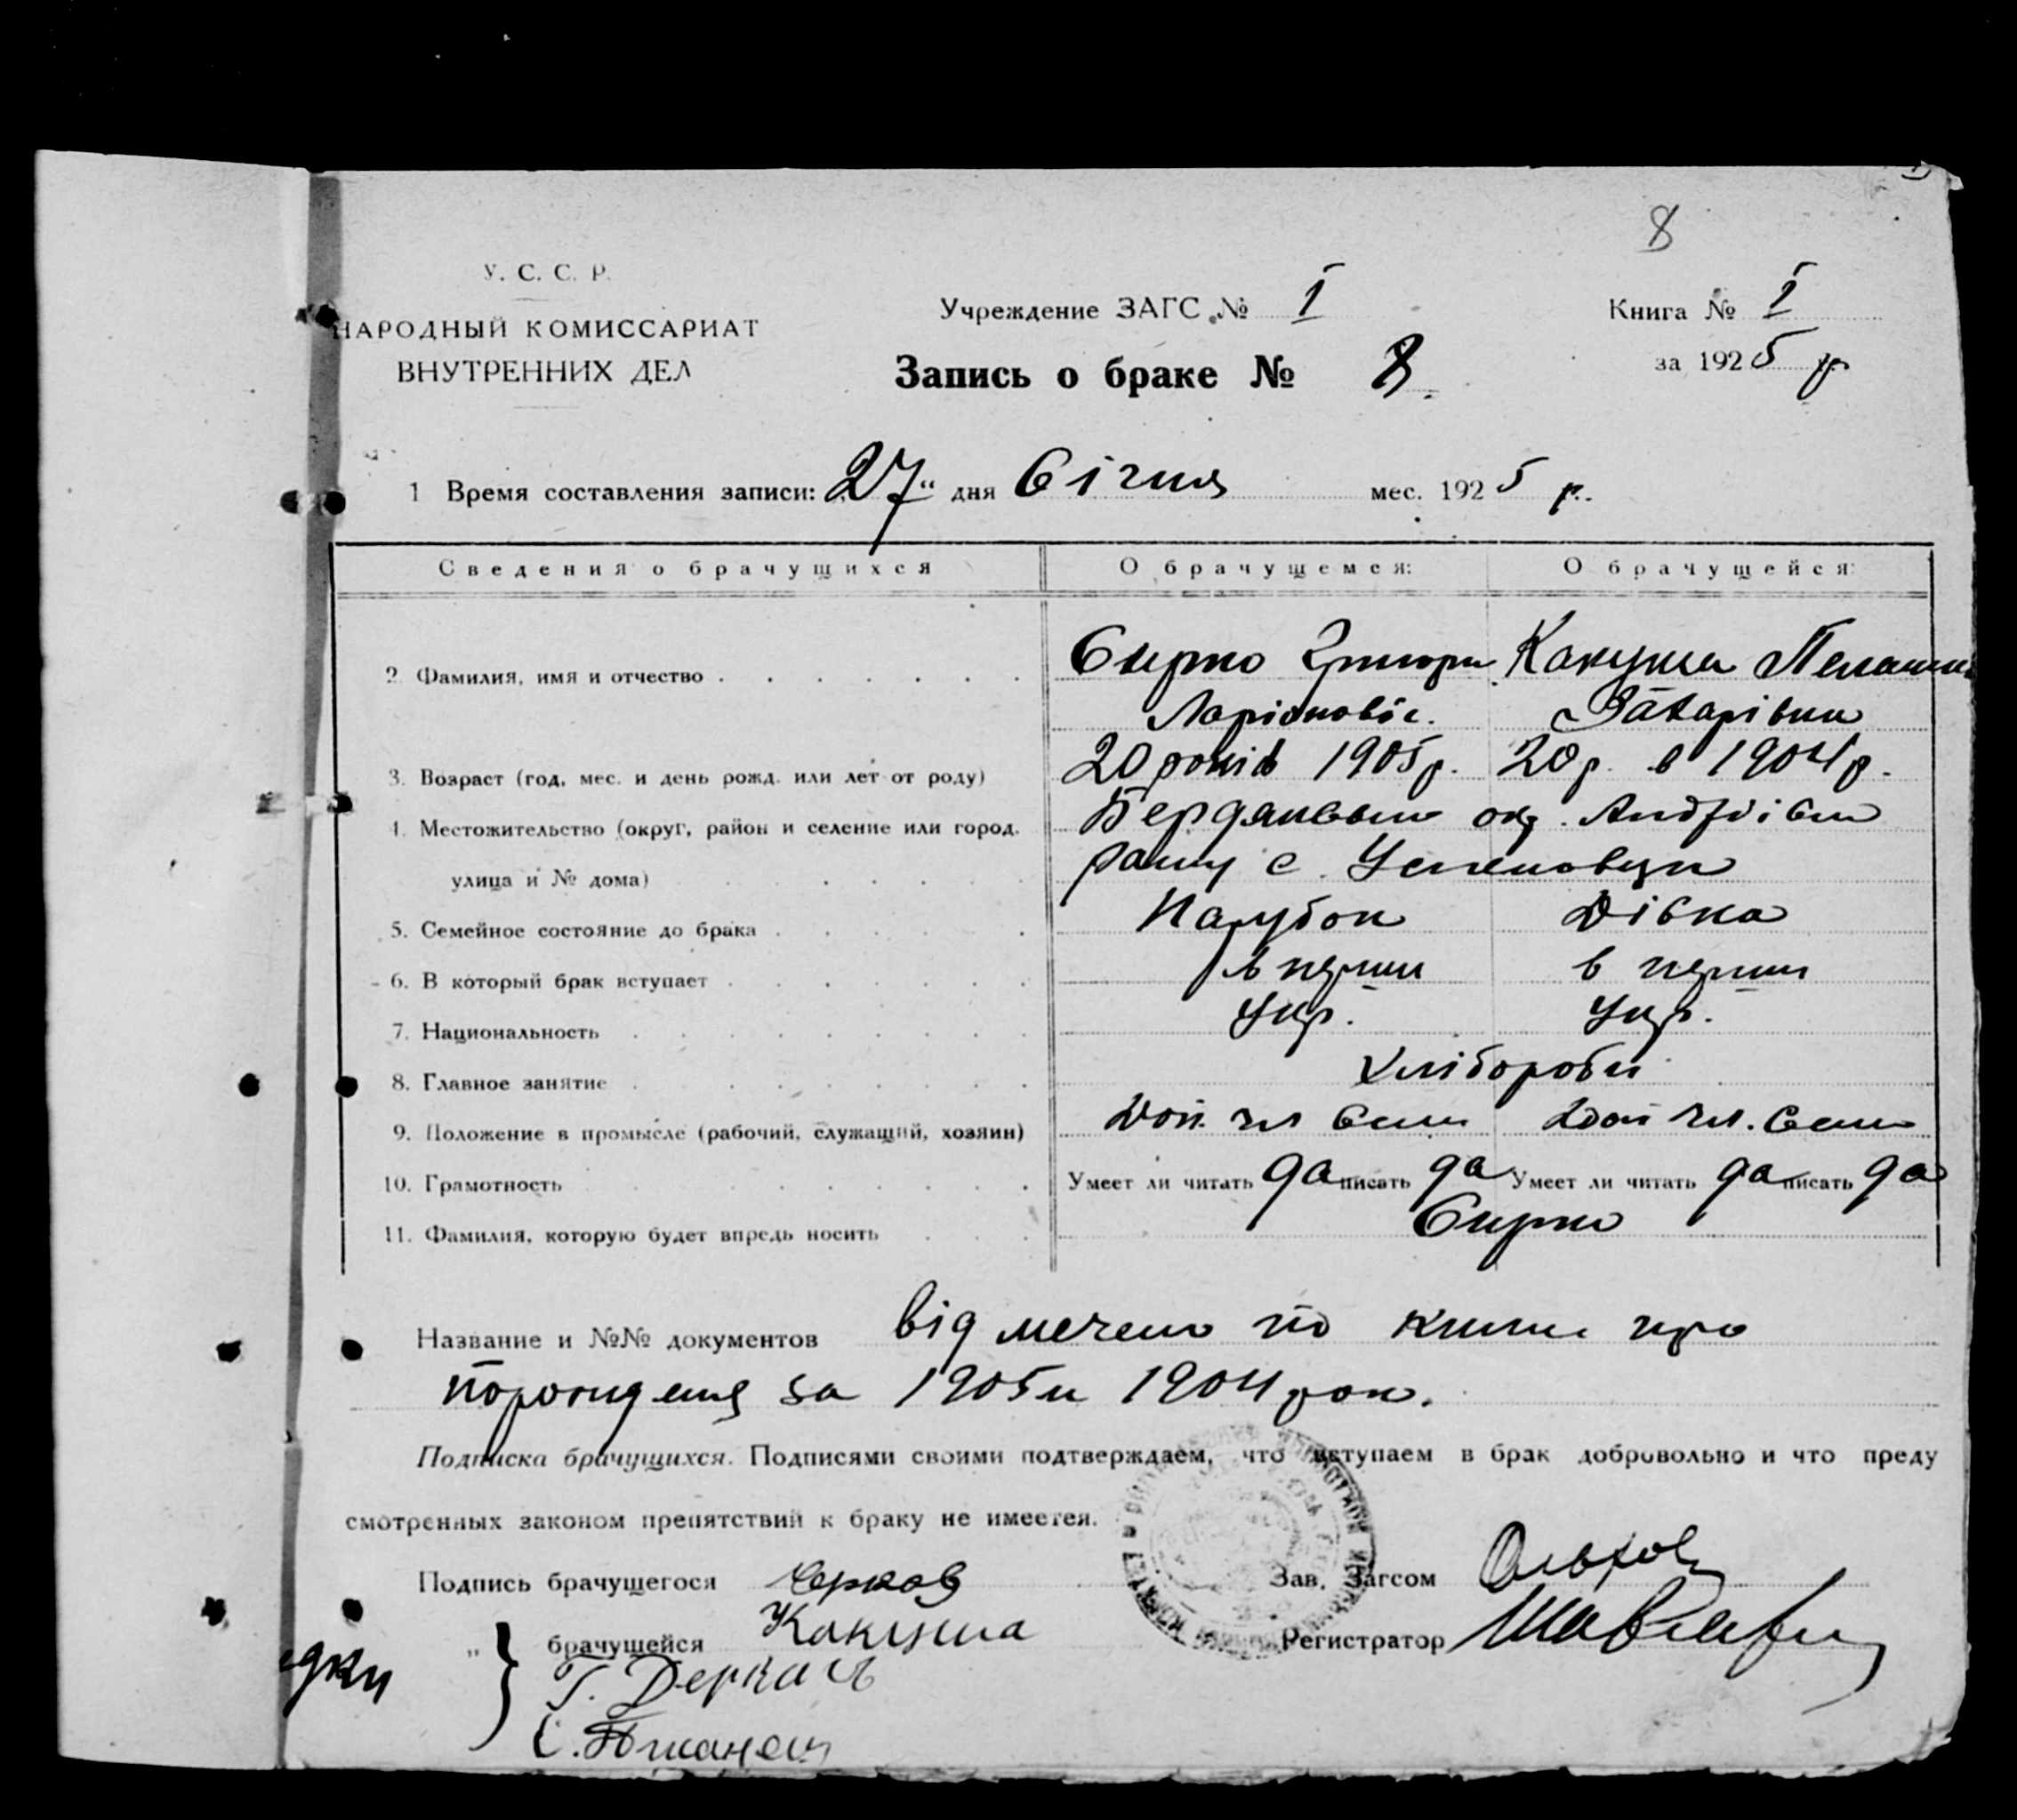 8
У. С. С. Р.
НАРОДНЫЙ КОМИССАРИАТ
ВНУТРЕННИХ ДЕЛ
Учреждение ЗАГС № I
Книга № I
за 1925 р.
Запись о браке № 8.
1 Время составления записи: „27“ дня Січня мес. 1925 р.
Сведения о брачущихся О брачущемся: О брачущейся:
2. Фамилия, имя и отчество Сирко Григори Какуша Пелашки
Ларіоновіч. Захарівна
3. Возраст (год, мес. и день рожд. или лет от роду) 20 років 1905 р. 20 р. в 1904 р.
4. Местожительство (округ, район и селение или город, Бердянської окр. Андріївськ
улица и № дома) рану с. Успеновци
5. Семейное состояние до брака Парубок Дівка
6. В который брак вступает в перши в перши
7. Национальность Укр. Укр.
8. Главное занятие Хлібороби
9. Положение в промысле (рабочий, служащий, хозяин) Доп. чл семи Доп чл. семи
10. Грамотность Умеет ли читать да писать да Умеет ли читать да писать да
11. Фамилия, которую будет впредь носить Сирко
Название и №№ документов відмечено по книги про
порождения за 1905 и 1904 рок.
Подписка брачущихся. Подписями своими подтверждаем, что вступаем в брак добровольно и что преду
смотренных законом препятствий к браку не имеется.
Подпись брачущегося
Зав. Загсом
„ брачущейся Какуша
Регистратор
Г. Деркач